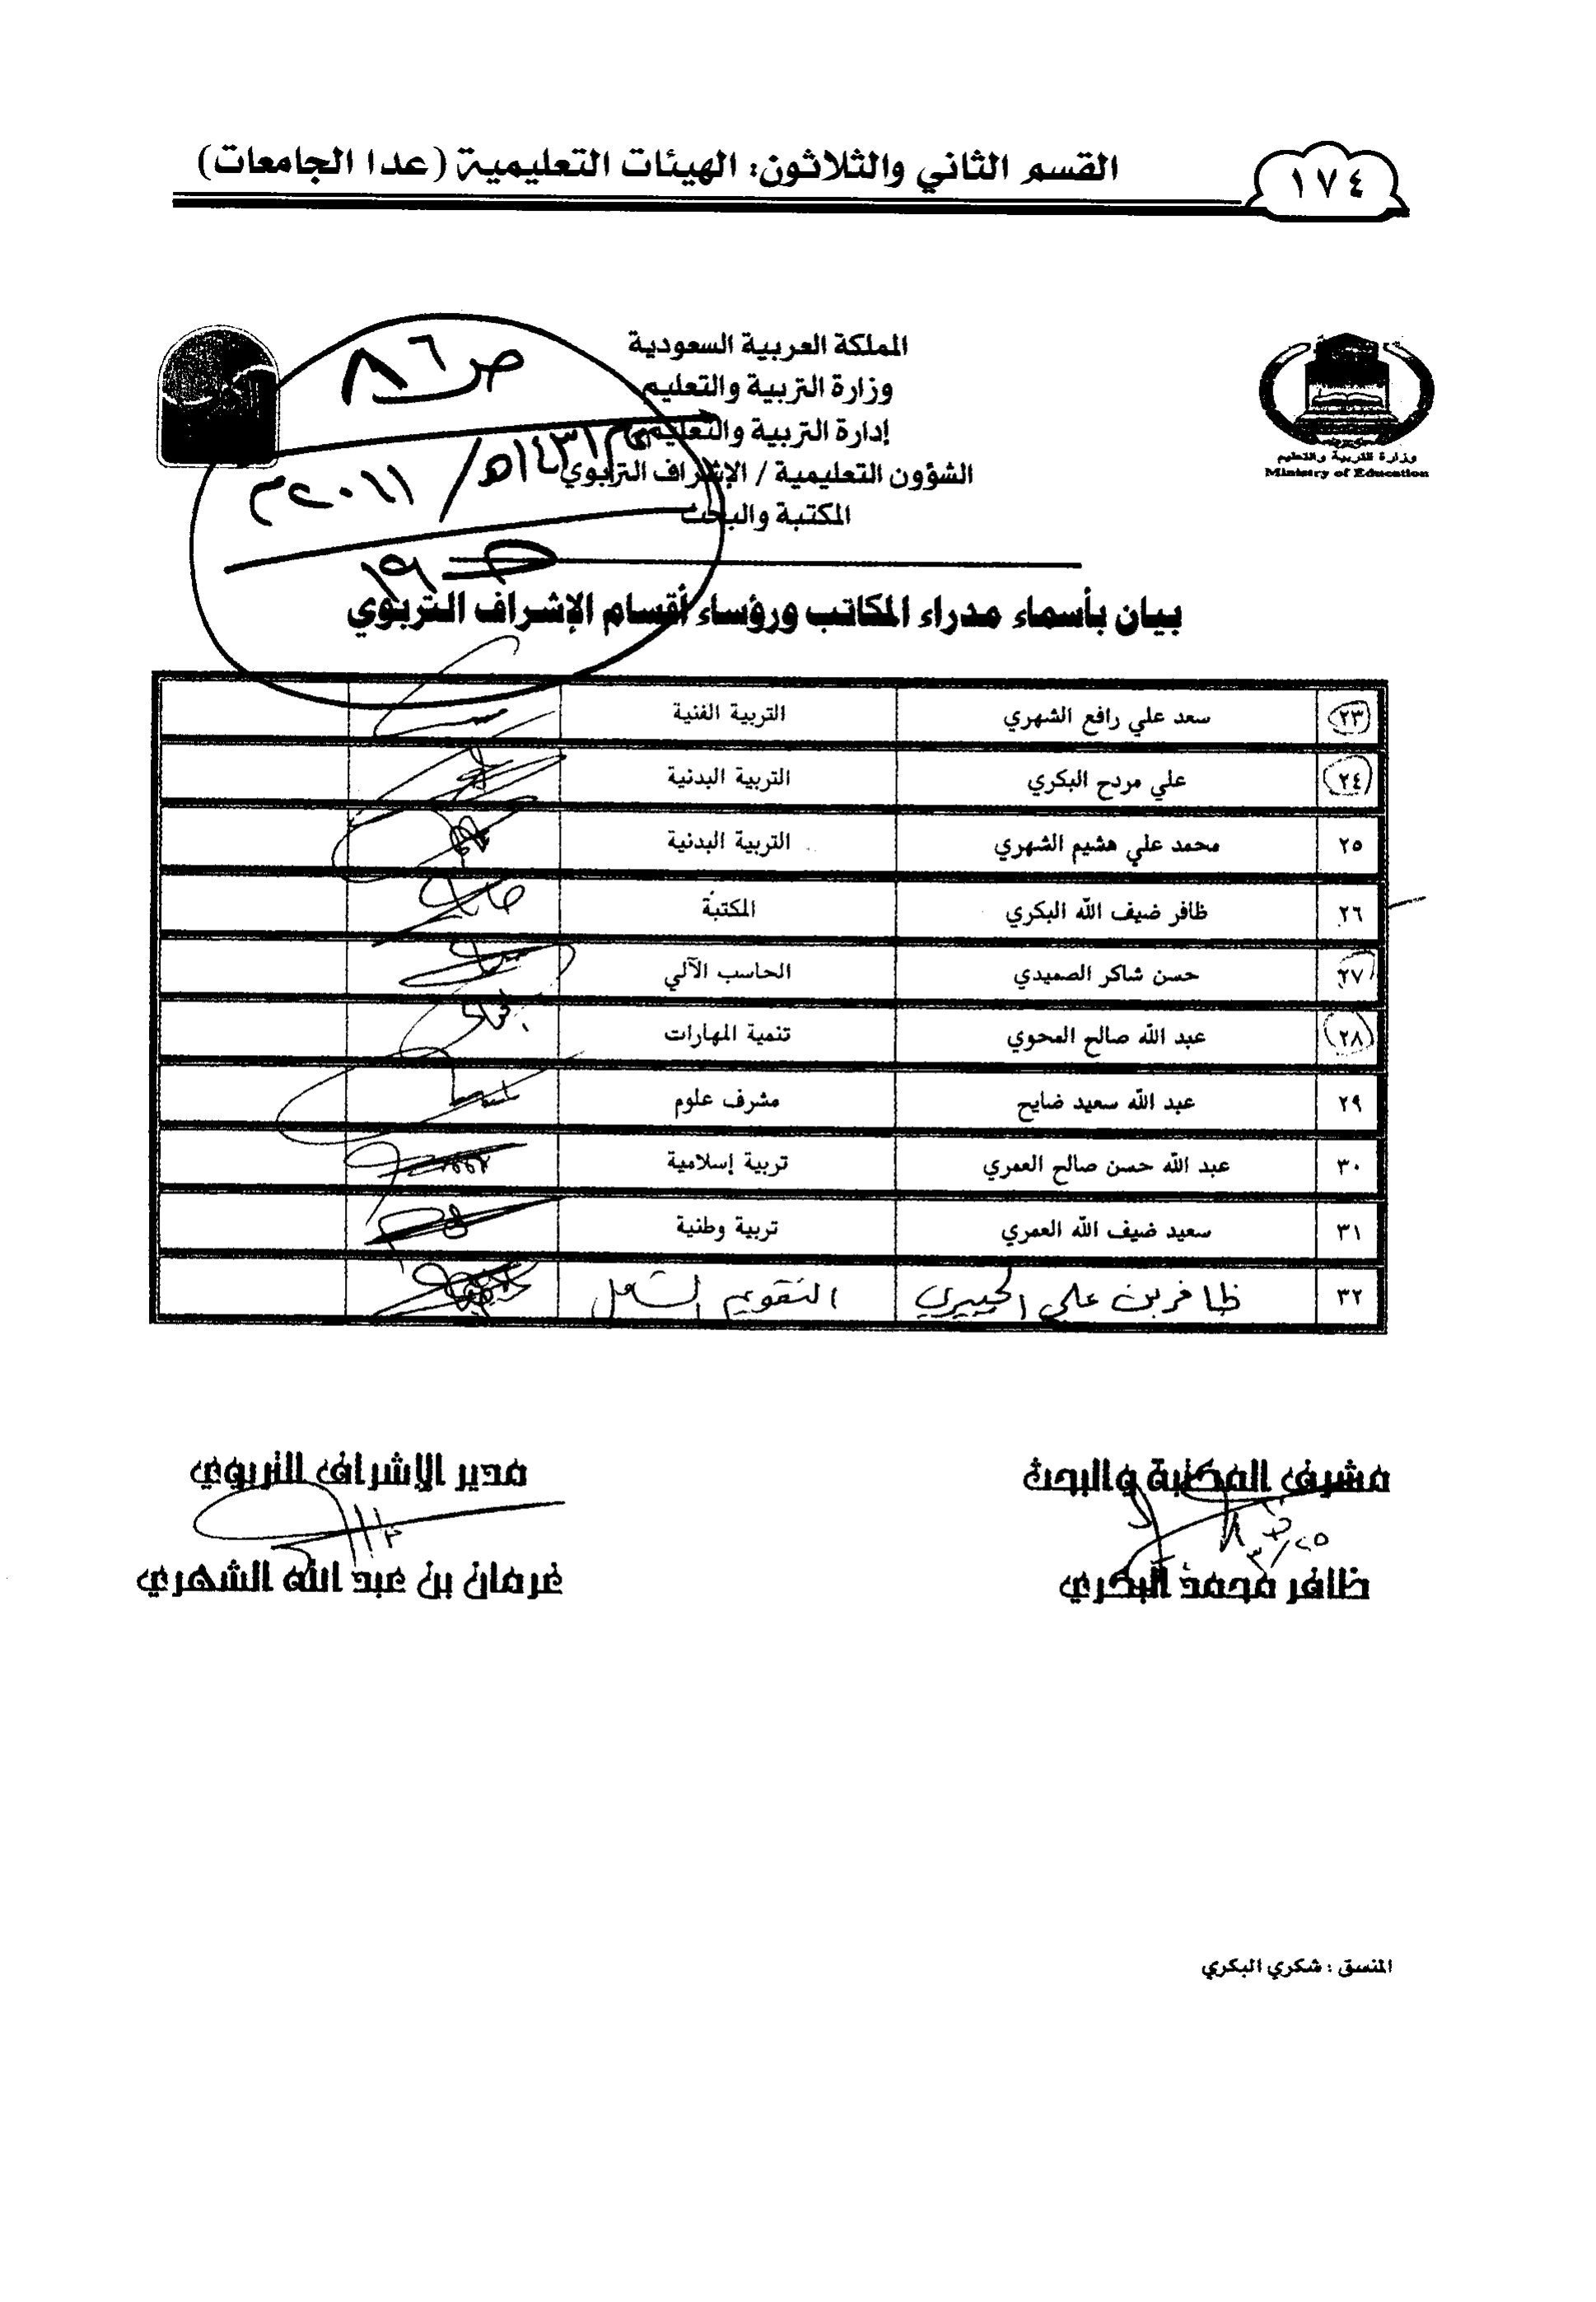 ١٧٤
القسم الثاني والثلاثون: الهيئات التعليمية (عدا الجامعات)
المملكة العربية السعودية
وزارة التربية والتعليم
إدارة التربية والتعليم
الشؤون التعليمية / الإشراف التربوي
المكتبة والبحث
وزارة التربية والتعليم
Ministry of Education
ص ٨٦
١٤٣١هـ / ٢٠١١م
بيان بأسماء مدراء المكاتب ورؤساء أقسام الإشراف التربوي
٢٣ سعد علي رافع الشهري التربية الفنية
٢٤ علي مردح البكري التربية البدنية
٢٥ محمد علي هشيم الشهري التربية البدنية
٢٦ ظافر ضيف الله البكري المكتبة
٢٧ حسن شاكر الصميدي الحاسب الآلي
٢٨ عبد الله صالح المحوي تنمية المهارات
٢٩ عبد الله سعيد ضايح مشرف علوم
٣٠ عبد الله حسن صالح العمري تربية إسلامية
٣١ سعيد ضيف الله العمري تربية وطنية
٣٢ ظافر بن علي الحبيري التقويم الشامل
مشرف المكتبة والبحث
مدير الإشراف التربوي
ظافر محمد البكري
غرمان بن عبد الله الشهري
المنسق : شكري البكري